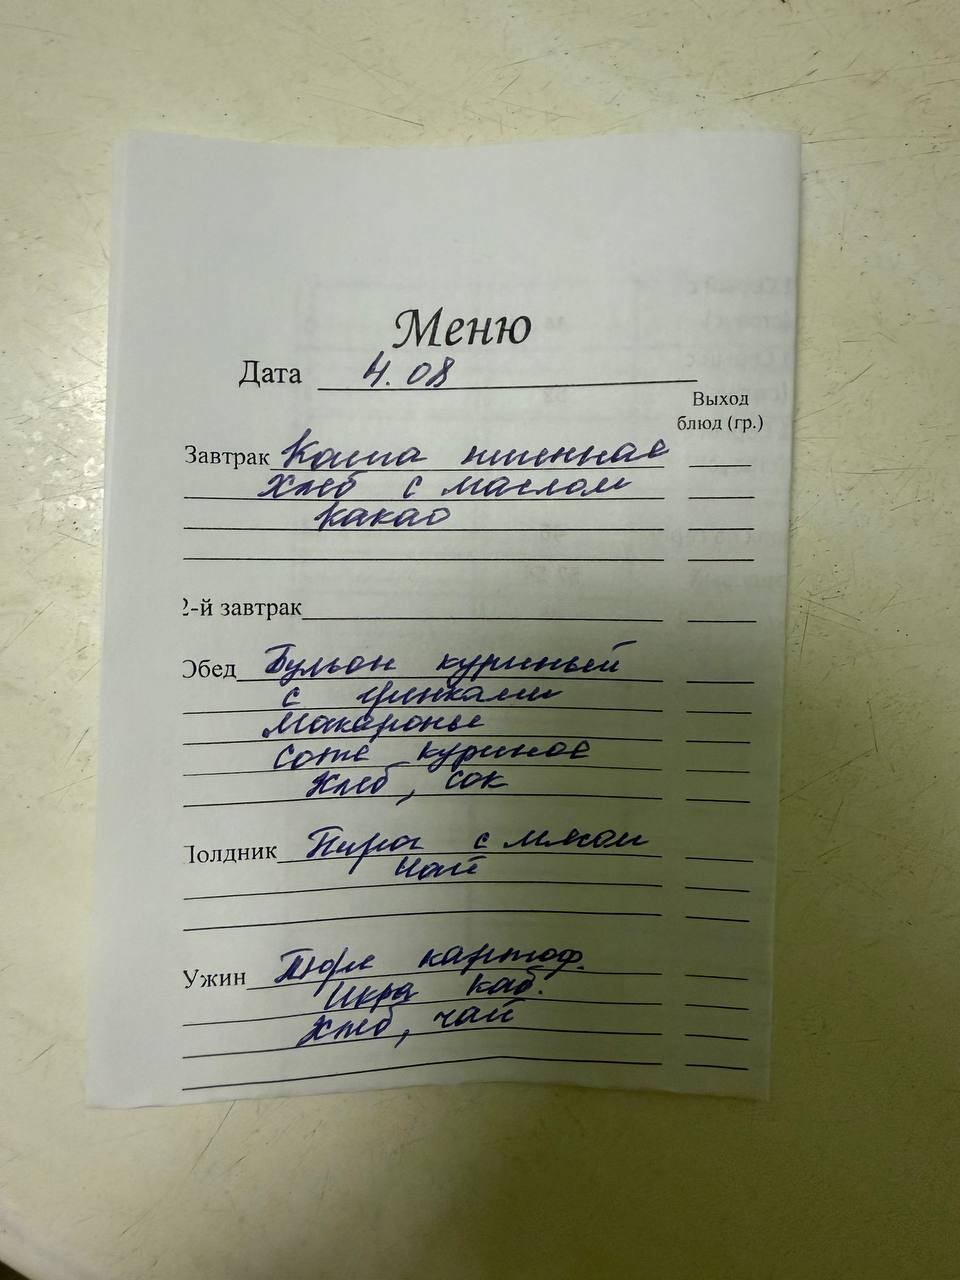 Меню
Дата 4.08
Выход
блюд (гр.)
Завтрак Каша пшенная
Хлеб с маслом
Какао
2-й завтрак
Обед Бульон куриный
с гренками
Макароны
Соте куриное
Хлеб, сок
Полдник Пирог с мясом
Чай
Ужин Пюре картоф.
Икра каб.
Хлеб, чай